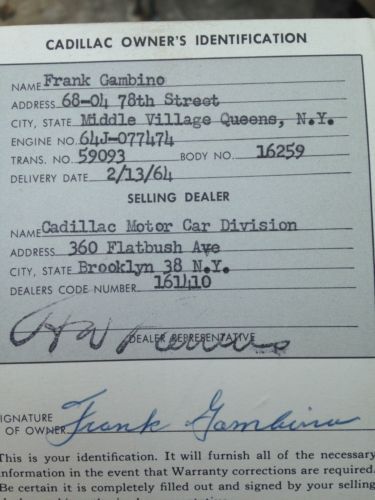 CADILLAC OWNER'S IDENTIFICATION
NAME Frank Gambino
ADDRESS 68-04 78th Street
CITY, STATE Middle Village Queens, N.Y.
ENGINE NO. 64J-077474
TRANS. NO. 59093 BODY NO. 16259
DELIVERY DATE 2/13/64
SELLING DEALER
NAME Cadillac Motor Car Division
ADDRESS 360 Flatbush Ave
CITY, STATE Brooklyn 38 N.Y.
DEALERS CODE NUMBER 161410
DEALER REPRESENTATIVE
SIGNATURE
OF OWNER Frank Gambino
This is your identification. It will furnish all of the necessary
information in the event that Warranty corrections are required.
Be certain it is completely filled out and signed by your selling